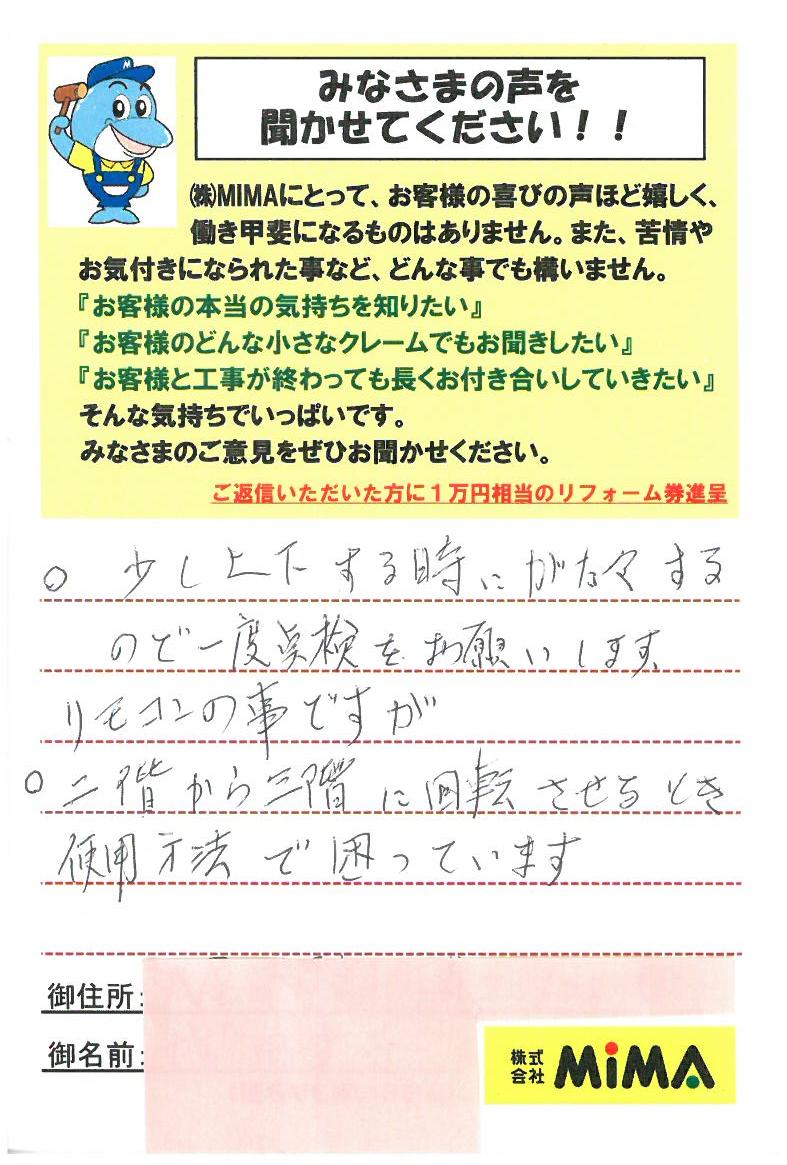 みなさまの声を
聞かせてください！！
㈱MIMAにとって、お客様の喜びの声ほど嬉しく、
働き甲斐になるものはありません。また、苦情や
お気付きになられた事など、どんな事でも構いません。
『お客様の本当の気持ちを知りたい』
『お客様のどんな小さなクレームでもお聞きしたい』
『お客様と工事が終わっても長くお付き合いしていきたい』
そんな気持ちでいっぱいです。
みなさまのご意見をぜひお聞かせください。
ご返信いただいた方に１万円相当のリフォーム券進呈
○ 少し上下する時にがたがたする
ので一度点検をお願いします
リモコンの事ですが
○ 二階から三階に回転させるとき
使用方法で困っています
御住所:
御名前:
株式
会社 MiMA